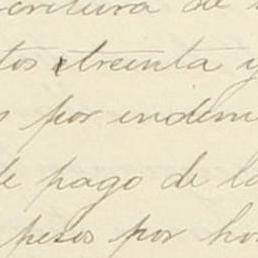 critura de
tos treinta y
s por indem
de pago de la
pesos por ho